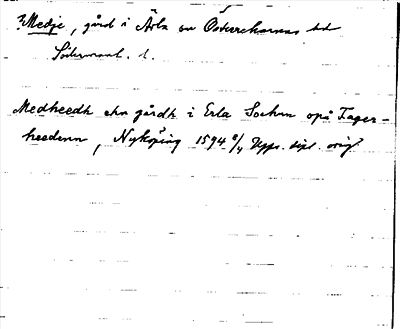 ?Medje, gård i Ärla sn Österrekarnes hd
Södermanl. l.
Medheedh ehn gårdh i Erla Sochnn opå Fager-
heedenn, Nyköping 1594 8/4 Upps. dipl. orig.